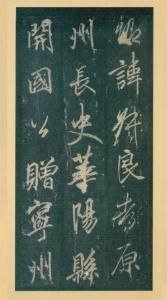 諱良原
州長史華陽縣
開國公贈寧州